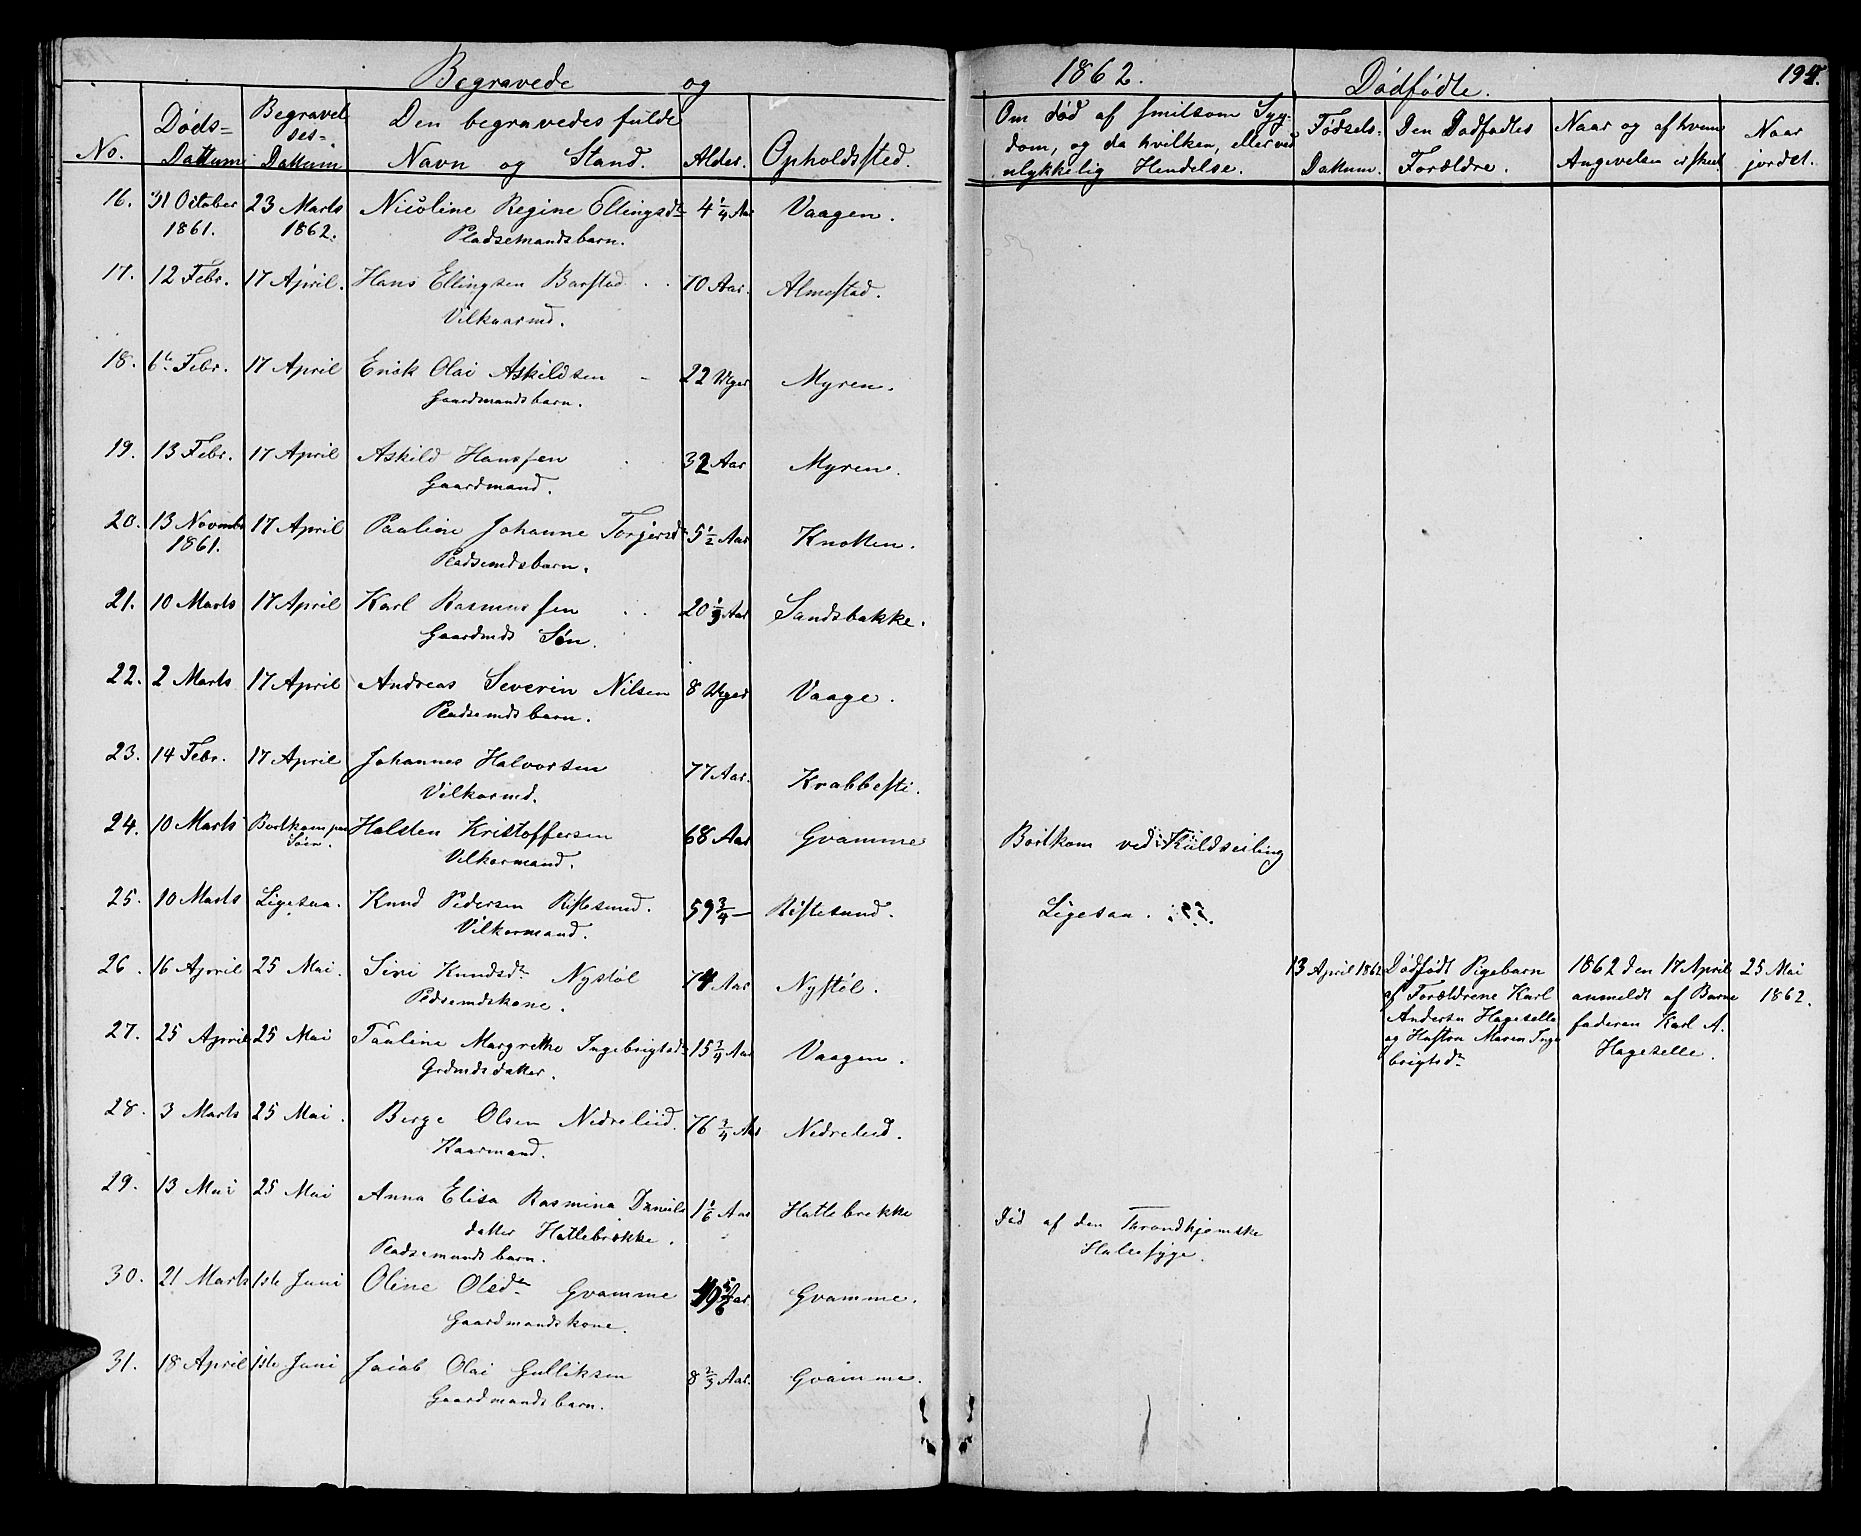 Begravede og 1862. Dødfødte. 194.
No. Døds-Dattum Begravelses-Dattum Den begravedes fulde Navn og Stand. Alder. Opholdsted. Om død af smitsom Sygdom, og da hvilken, eller ved ulykkelig Hendelse. Fødsels-Dattum. Den Dødfødtes Forældre. Naar og af hvem Angivelsen er skeet Naar jordet.
16. 31 October 1861. 23 Marts 1862. Nicoline Regine Ellingsdtr 4 1/4 Aar Vaagen.
Pladsemandsbarn.
17. 12 Febr. 17 April. Hans Ellingsen Barstad 70 Aar. Almestad.
Vilkaarmd.
18. 6te Febr. 17 April Erick Olai Askildsen 22 Uger Myren.
Gaardmandsbarn.
19. 13 Febr. 17 April Askild Hanssen 32 Aar Myren.
Gaardmand.
20. 13 Novmbr 1861. 17 April Pauline Johanne Torgersdtr 5 1/2 Aar Knotten.
Pladsemdsbarn.
21. 10 Marts 17 April Karl Rasmussen 20 1/3 Aar Sandsbakke.
Gaardmds Søn.
22. 2 Marts 17 April Andreas Severin Nilsen 8 Uger Vaage.
Pladsemdsbarn.
23. 14 Febr. 17 April Johannes Halvorsen 77 Aar. Krabbesti.
Vilkormd.
24. 10 Marts Bortkom paa Søen. Halsten Kristoffersen 68 Aar Gvamme Bortkom ved Kuldseiling
Vilkormand.
25. 10 Marts Ligesaa. Knud Pedersen Riftesund. 59 3/4 — Riftesund. Ligesaa.
Vilkormand.
26. 16 April 25 Mai. Siri Knudsdtr Nystøl 74 Aar Nystøl. 13 April 1862 Dødfødt Pigebarn 1862 den 17 April 25 Mai
Pedsemdskone. af Forældrene Karl anmeldt af Barne 1862.
27. 25 April 25 Mai Paulina Margrethe Ingebrigtsdtr 15 3/4 Aar Vaagen. Andersen Hageselle faderen Karl A.
Grdmdsdatter. og Hustru Maren Ingebrigtsdtr Hageselle.
28. 3 Marts 25 Mai. Berge Olsen Nedreleid. 76 3/4 Aar Nedreleid.
Kaarmand.
29. 13 Mai 25 Mai Anna Elisa Rasmina Daniels 1 1/6 Aar Hattebrekke Død af den Throndhjemske
datter Hattebrekke. Halsesyge.
Pladsemandsbarn.
30. 21 Marts 1ste Juni Oline Olsdtr Gvamme Aar. Gvamme.
Gaardmandskone.
31. 18 April 1ste Juni Jacob Olai Gulliksen 8 2/3 Aar. Gvamme.
Gaardmandsbarn.